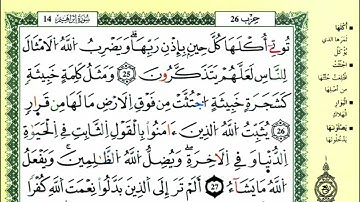 حِزْب 26
سُورَةُ إِبْرَاهِيمَ 14
تُوتِي أُكْلَهَا كُلَّ حِينٍ بِإِذْنِ رَبِّهَا وَيَضْرِبُ اللَّهُ الْأَمْثَالَ
لِلنَّاسِ لَعَلَّهُمْ يَتَذَكَّرُونَ 25 وَمَثَلُ كَلِمَةٍ خَبِيثَةٍ
كَشَجَرَةٍ خَبِيثَةٍ اجْتُثَّتْ مِن فَوْقِ الْأَرْضِ مَا لَهَا مِن قَرَارٍ
26 يُثَبِّتُ اللَّهُ الَّذِينَ ءَامَنُوا بِالْقَوْلِ الثَّابِتِ فِي الْحَيَوٰةِ
الدُّنْيَا وَفِي الْأَخِرَةِ وَيُضِلُّ اللَّهُ الظَّالِمِينَ وَيَفْعَلُ
اللَّهُ مَا يَشَاءُ 27 أَلَمْ تَرَ إِلَى الَّذِينَ بَدَّلُوا نِعْمَتَ اللَّهِ كُفْرًا
أُكْلَهَا
ثَمَرَهَا الذي
اجْتُثَّتْ
اقْتُلِعَتْ جُثَّتُهَا
مِن أَصْلِهَا
الْبَوَارِ
الْهَلَاكِ
يَصْلَوْنَهَا
يَدْخُلُونَهَا